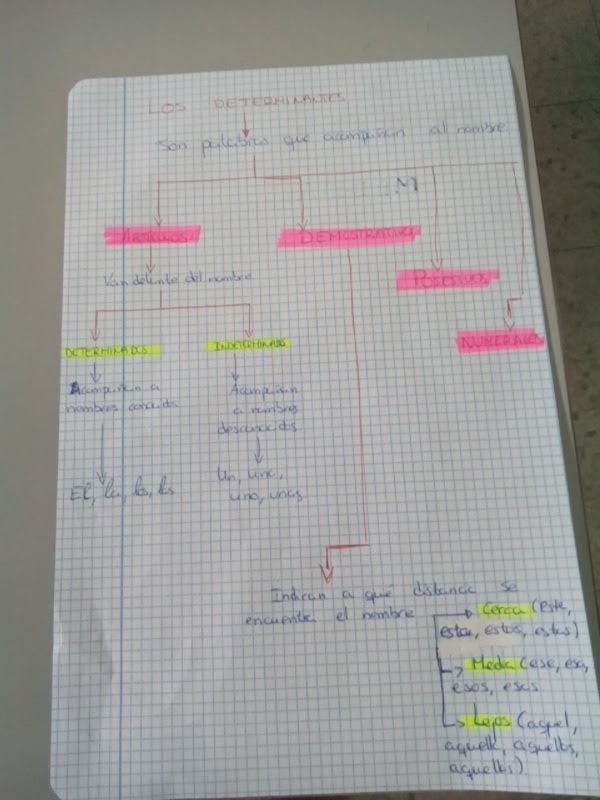 LOS DETERMINANTES
Son palabras que acompañan al nombre
M
ARTÍCULOS
DEMOSTRATIVO
Van delante del nombre
POSESIVOS
NUMERALE
DETERMINADOS
INDETERMINADOS
Acompañan a
nombres conocidos
Acompañan
a nombres
desconocidos
El, la, los, las
Un, una,
uno, unas
Indican a qué distancia se
encuentra el nombre
Cerca (este,
esta, estos, estas)
Media (ese, esa,
esos, esas
Lejos (aquel,
aquella, aquellos,
aquellas)